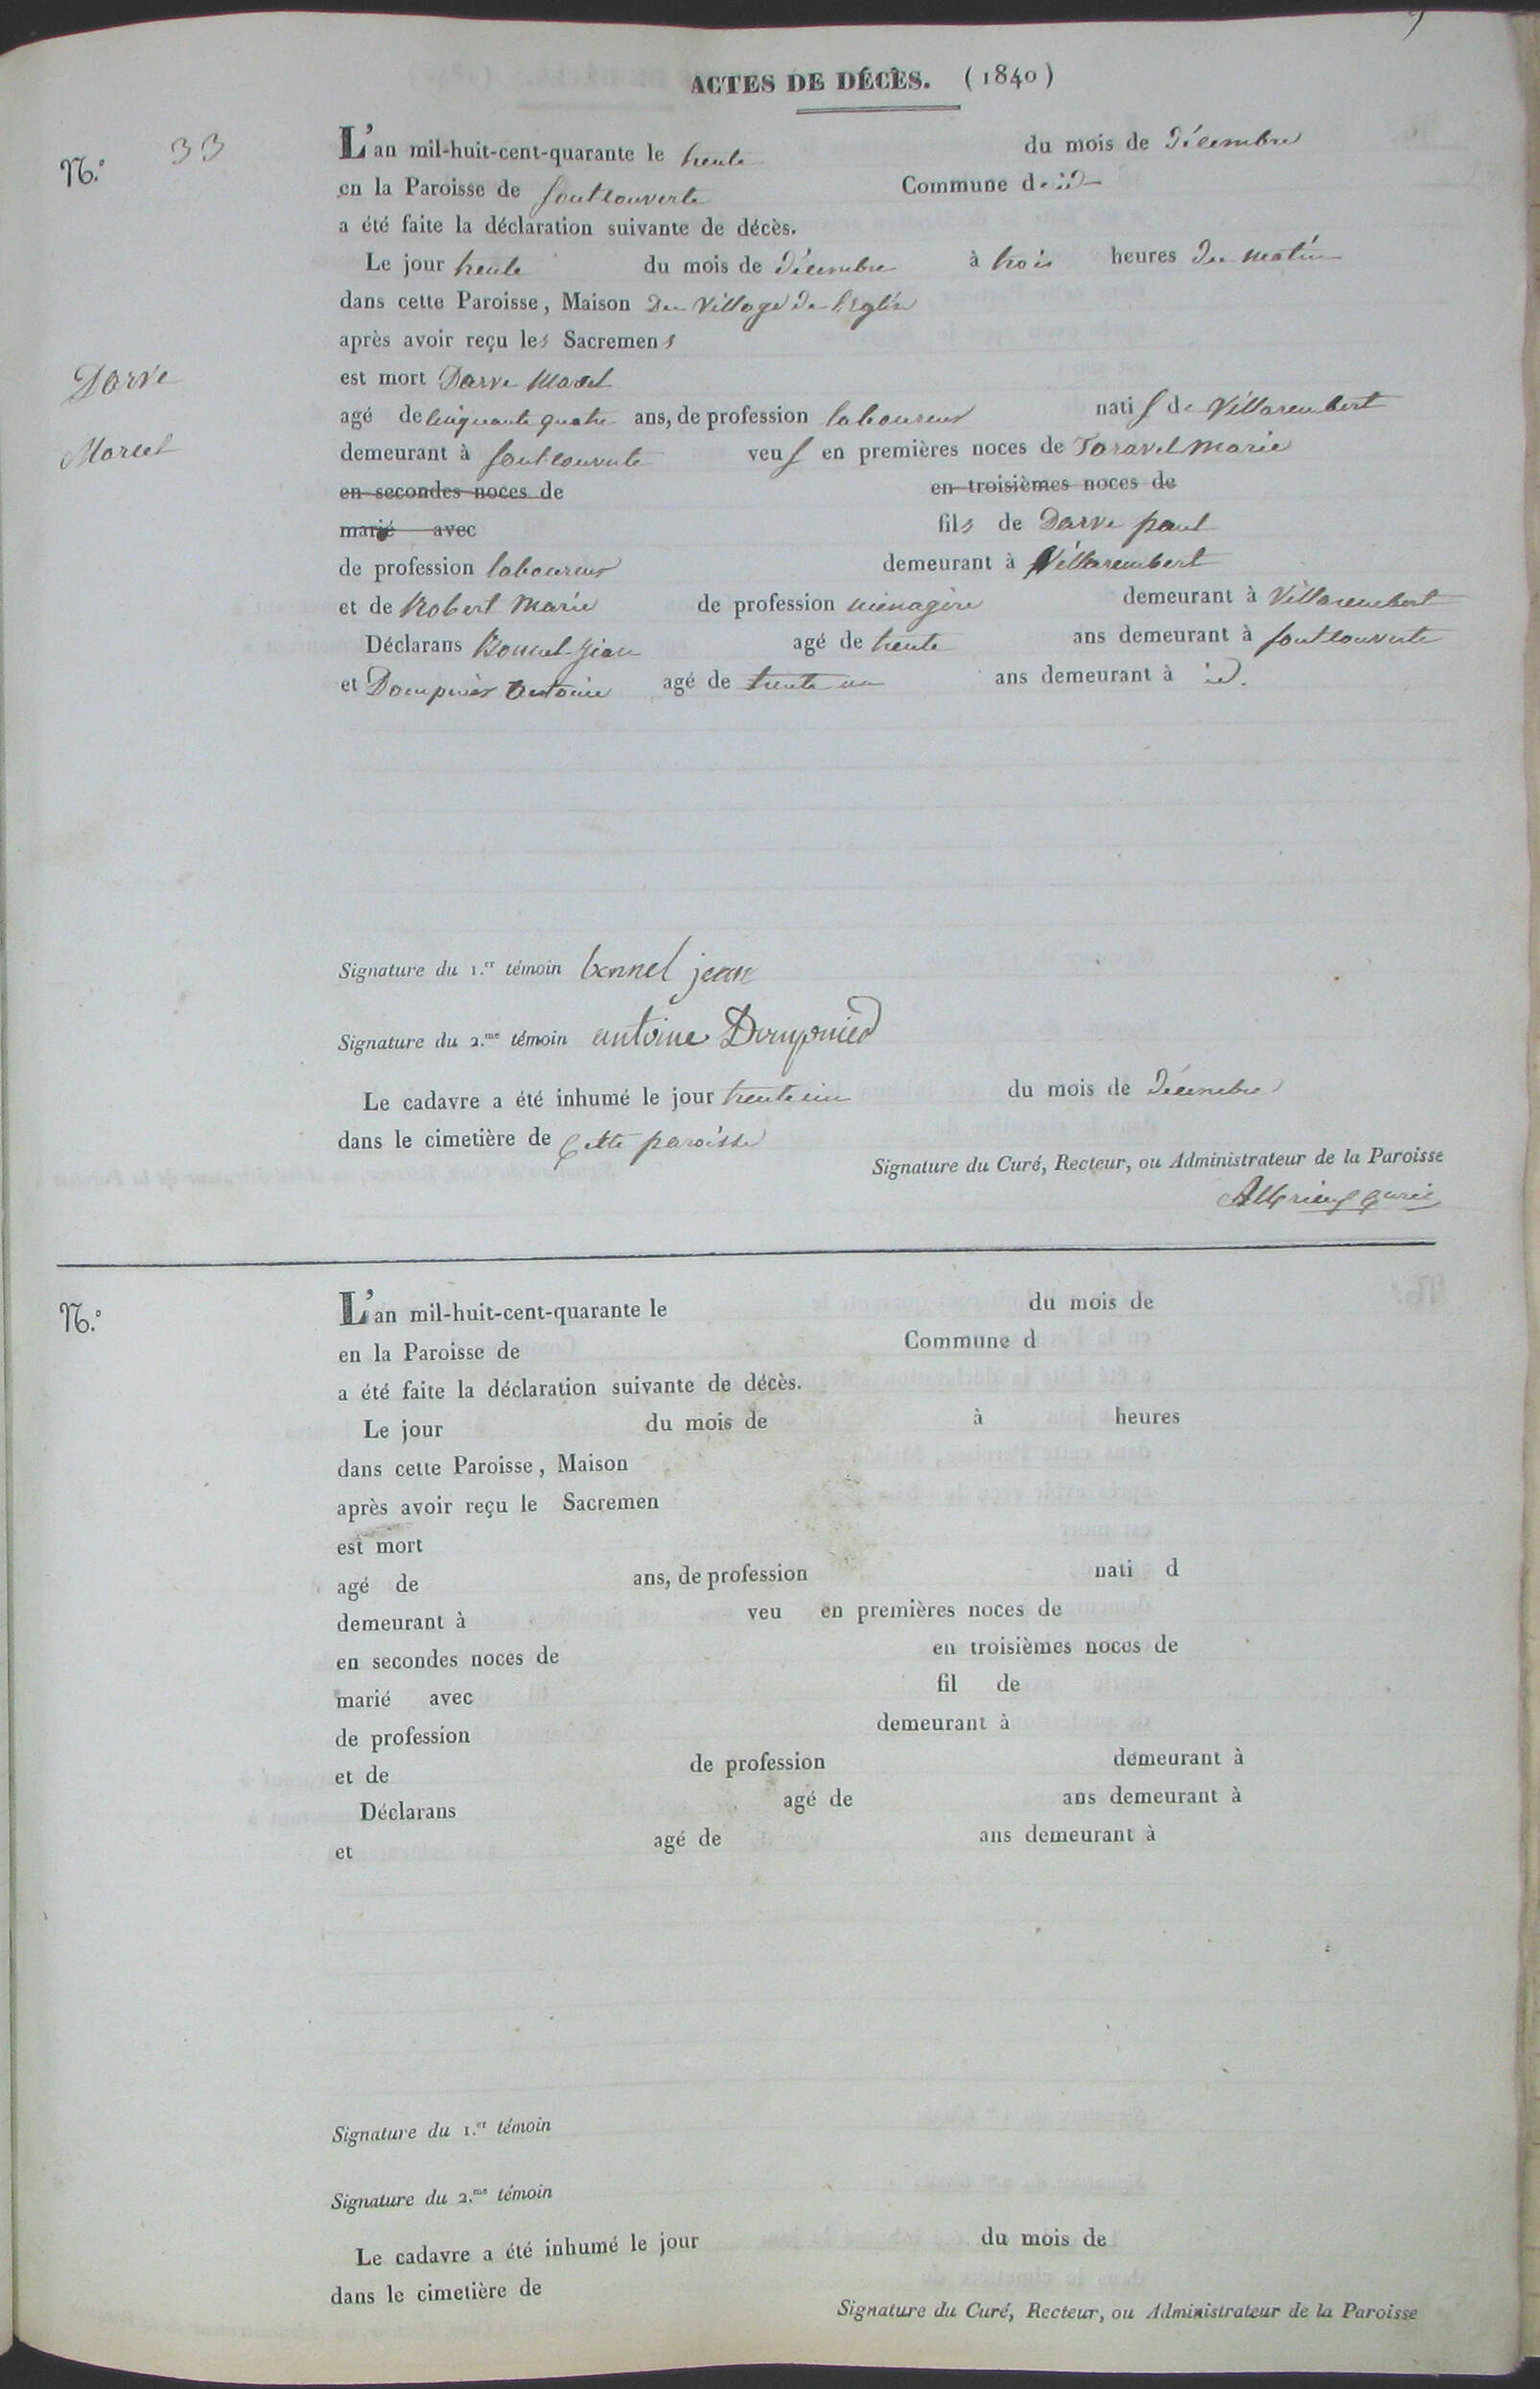 ACTES DE DÉCÈS. (1840)
N.° 33
Darve
Marcel
L'an mil-huit-cent-quarante le trente du mois de Décembre
en la Paroisse de fontcouverte Commune de id
a été faite la déclaration suivante de décès.
Le jour trente du mois de Décembre à trois heures du matin
dans cette Paroisse, Maison du village de l'Eglise
après avoir reçu les Sacremens
est mort Darve Marcel
agé de cinquante quatre ans, de profession laboureur natif de Villarembert
demeurant à fontcouverte veuf en premières noces de Taravel Marie
en secondes noces de en troisièmes noces de
marié avec fils de Darve paul
de profession laboureur demeurant à Villarembert
et de Robert Marie de profession ménagère demeurant à Villarembert
Déclarans Bonnel Jean agé de trente ans demeurant à fontcouverte
et Dompnier Antoine agé de trente un ans demeurant à id.
Signature du 1.er témoin bonnel jean
Signature du 2.me témoin antoine Dompnier
Le cadavre a été inhumé le jour trente un du mois de Décembre
dans le cimetière de cette paroisse
Signature du Curé, Recteur, ou Administrateur de la Paroisse
curé
N.°
L'an mil-huit-cent-quarante le du mois de
en la Paroisse de Commune d
a été faite la déclaration suivante de décès.
Le jour du mois de à heures
dans cette Paroisse, Maison
après avoir reçu le Sacremen
est mort
agé de ans, de profession nati d
demeurant à veu en premières noces de
en secondes noces de en troisièmes noces de
marié avec fil de
de profession demeurant à
et de de profession demeurant à
Déclarans agé de ans demeurant à
et agé de ans demeurant à
Signature du 1.er témoin
Signature du 2.me témoin
Le cadavre a été inhumé le jour du mois de
dans le cimetière de
Signature du Curé, Recteur, ou Administrateur de la Paroisse